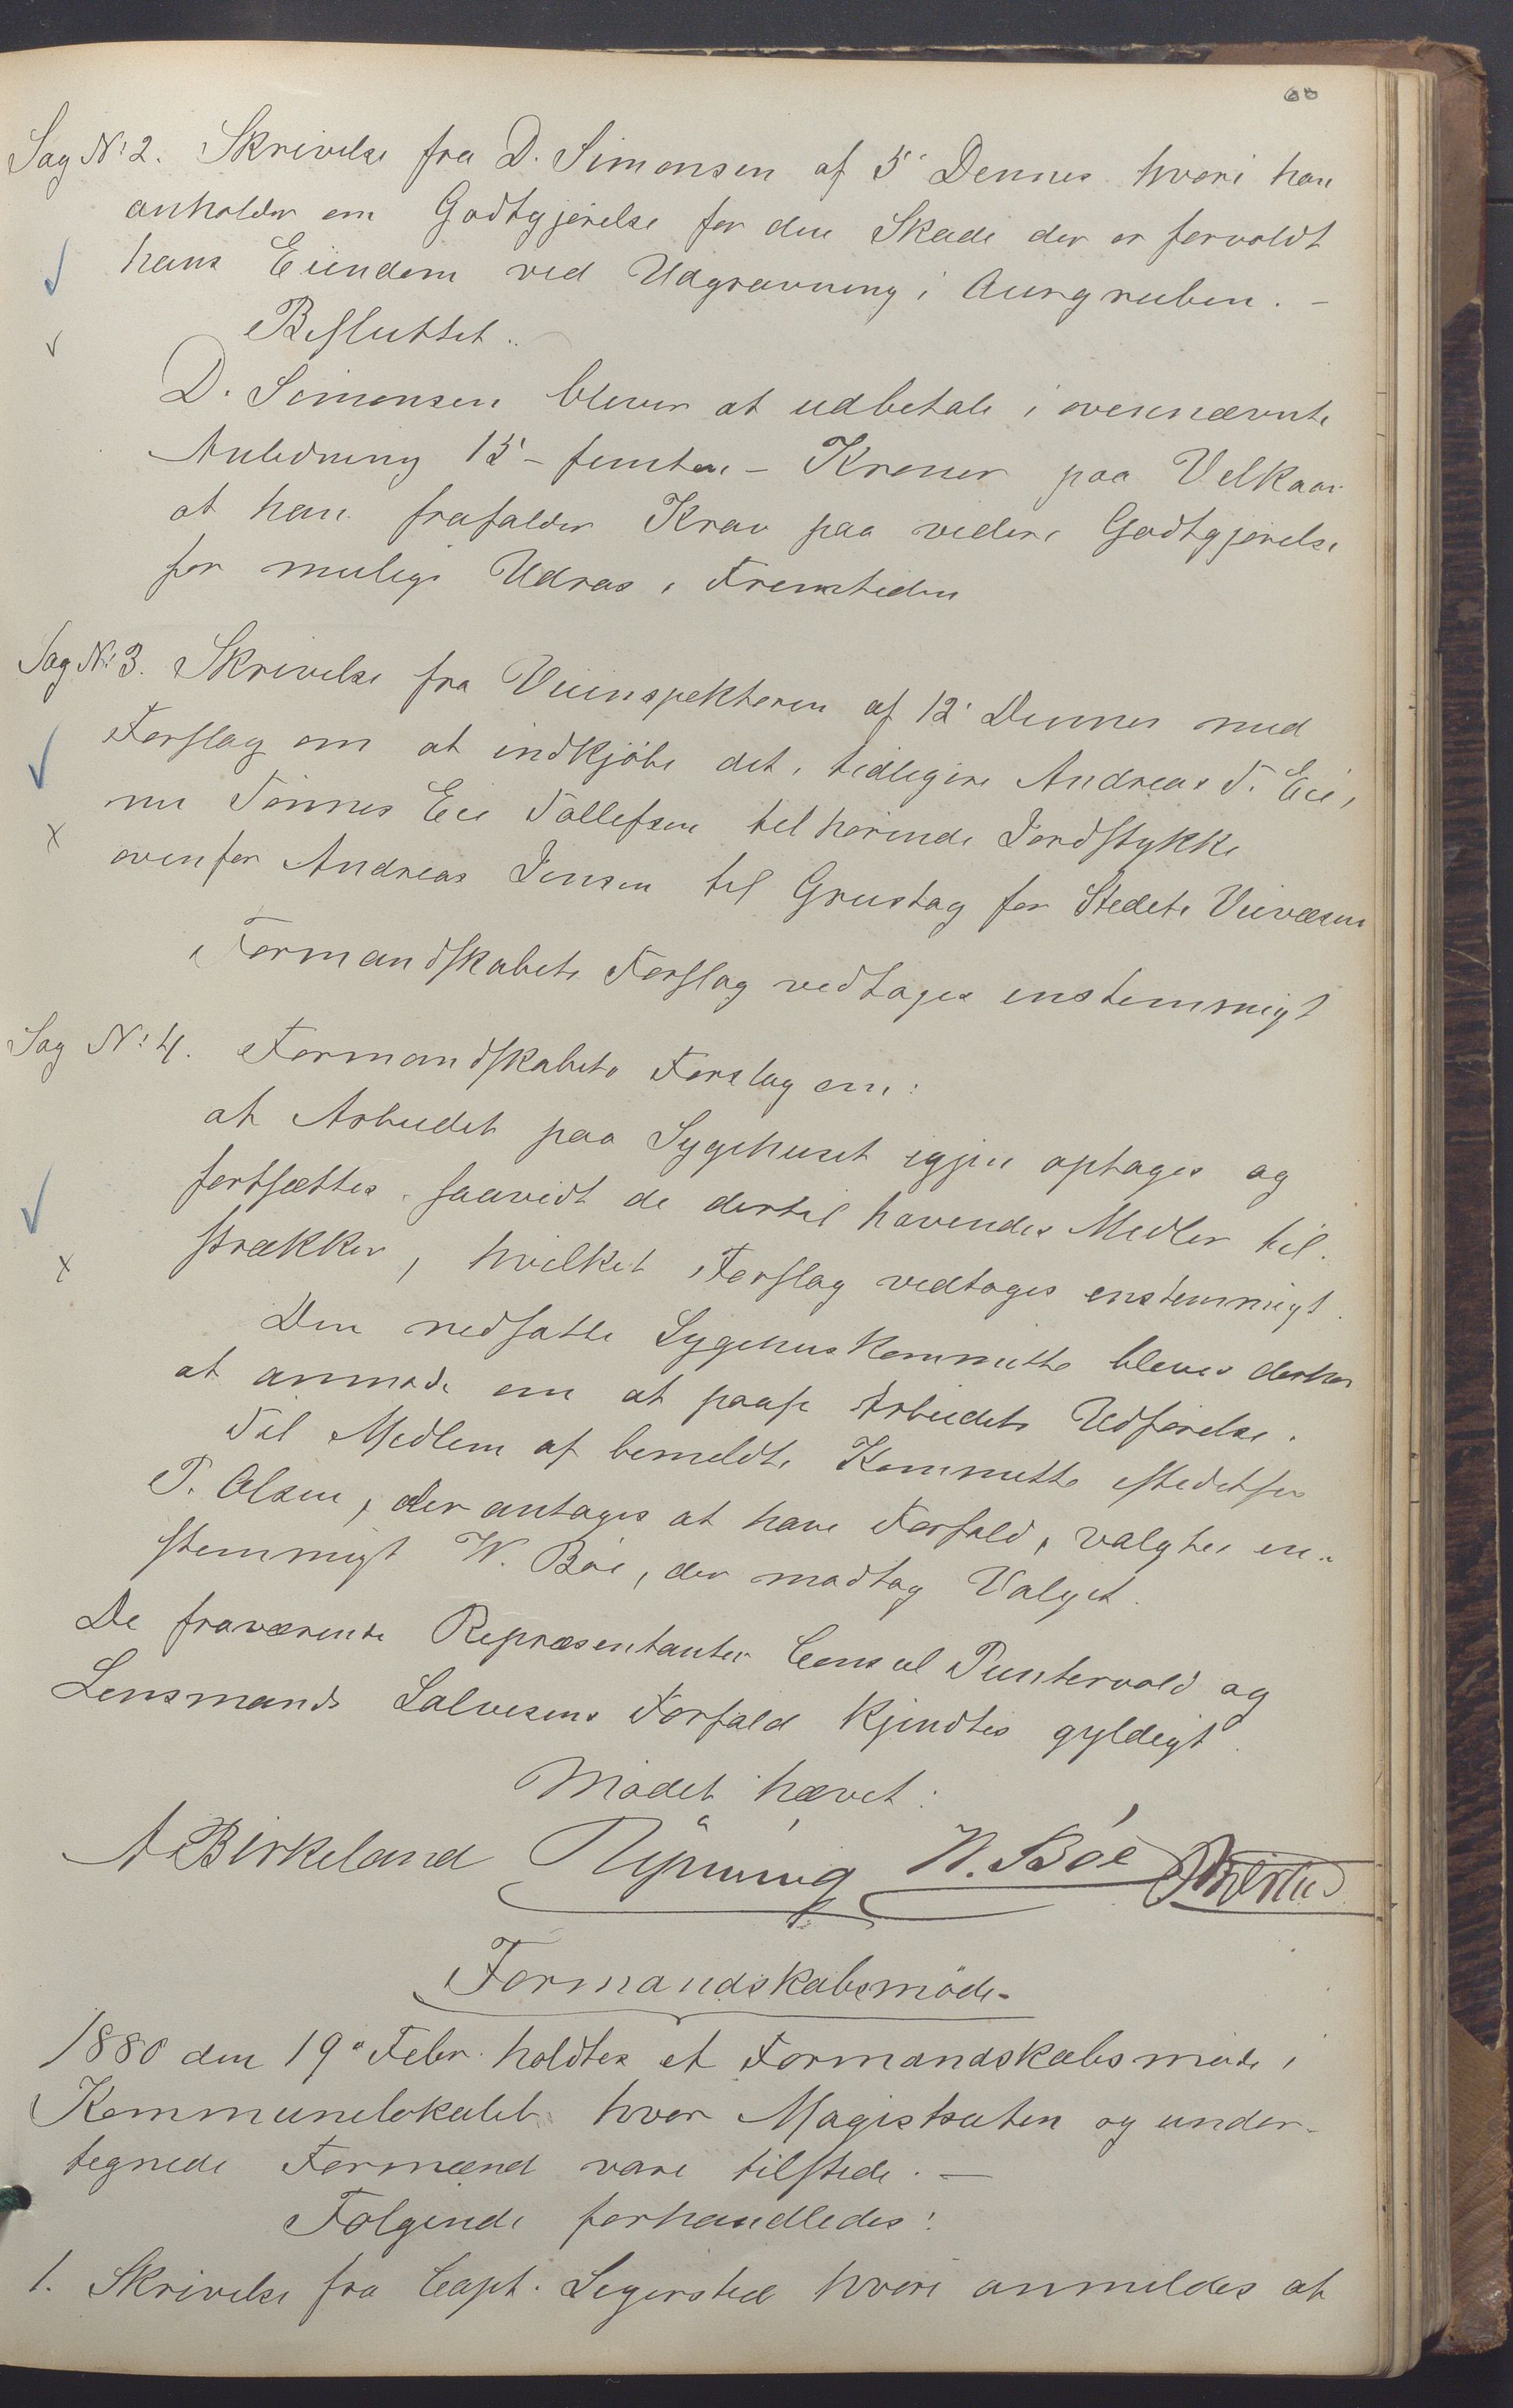 60
Sag No 2. Skrivelse fra D. Simonsen af 5' Dennes hvori han
anholder om Godtgjørelse for den Skade der er forvoldt
hans Eiendom ved Udgravning i Aurgruben. -
Besluttet.
D. Simonsen bliver at udbetale i ovennævnte
Anledning 15 - femten - Kroner paa Velkaar
at han frafalder Krav paa videre Godtgjørelse
for mulige Udras i Fremtiden
Sag No 3. Skrivelse fra Veiinspektøren af 12' Dennes med
Forslag om at indkjøbe det, tidligere Andreas T. Eie,
nu Tønnes Eie Tollefsen tilhørende Jordstykke
ovenfor Andreas Jensen til Grustag for Stedets Veivæsen
Formandskabets Forslag vedtages enstemmigt
Sag No 4. Formandskabets Forslag om:
at Arbeidet paa Sygehuset igjen optages og
fortsættes saavidt de dertil havendes Midler til-
strækker, hvilket Forslag vedtoges enstemmigt.
Den nedsatte Sygehuskommitte bleves derhos
at anmode om at paase Arbeidets Udførelse.
Til Medlem af bemeldte Kommitte istedetfor
P. Olsen, der antages at have Forfald, valgtes en-
stemmigt W. Bøe, der modtog Valget.
De fraværende Repræsentanter Consul Puntervold og
Lensmand Salvesens Forfald kjendtes gyldigt.
Mødet hævet:
A Birkeland W. Böe
Formandskabsmøde
1880 den 19' Febr. holdtes et Formandskabsmøde i
Kommunelokalet hvor Magistraten og under-
tegnede Formænd vare tilstede. -
Følgende forhandledes:
1. Skrivelse fra Capt. Segersted hvori anmeldes at